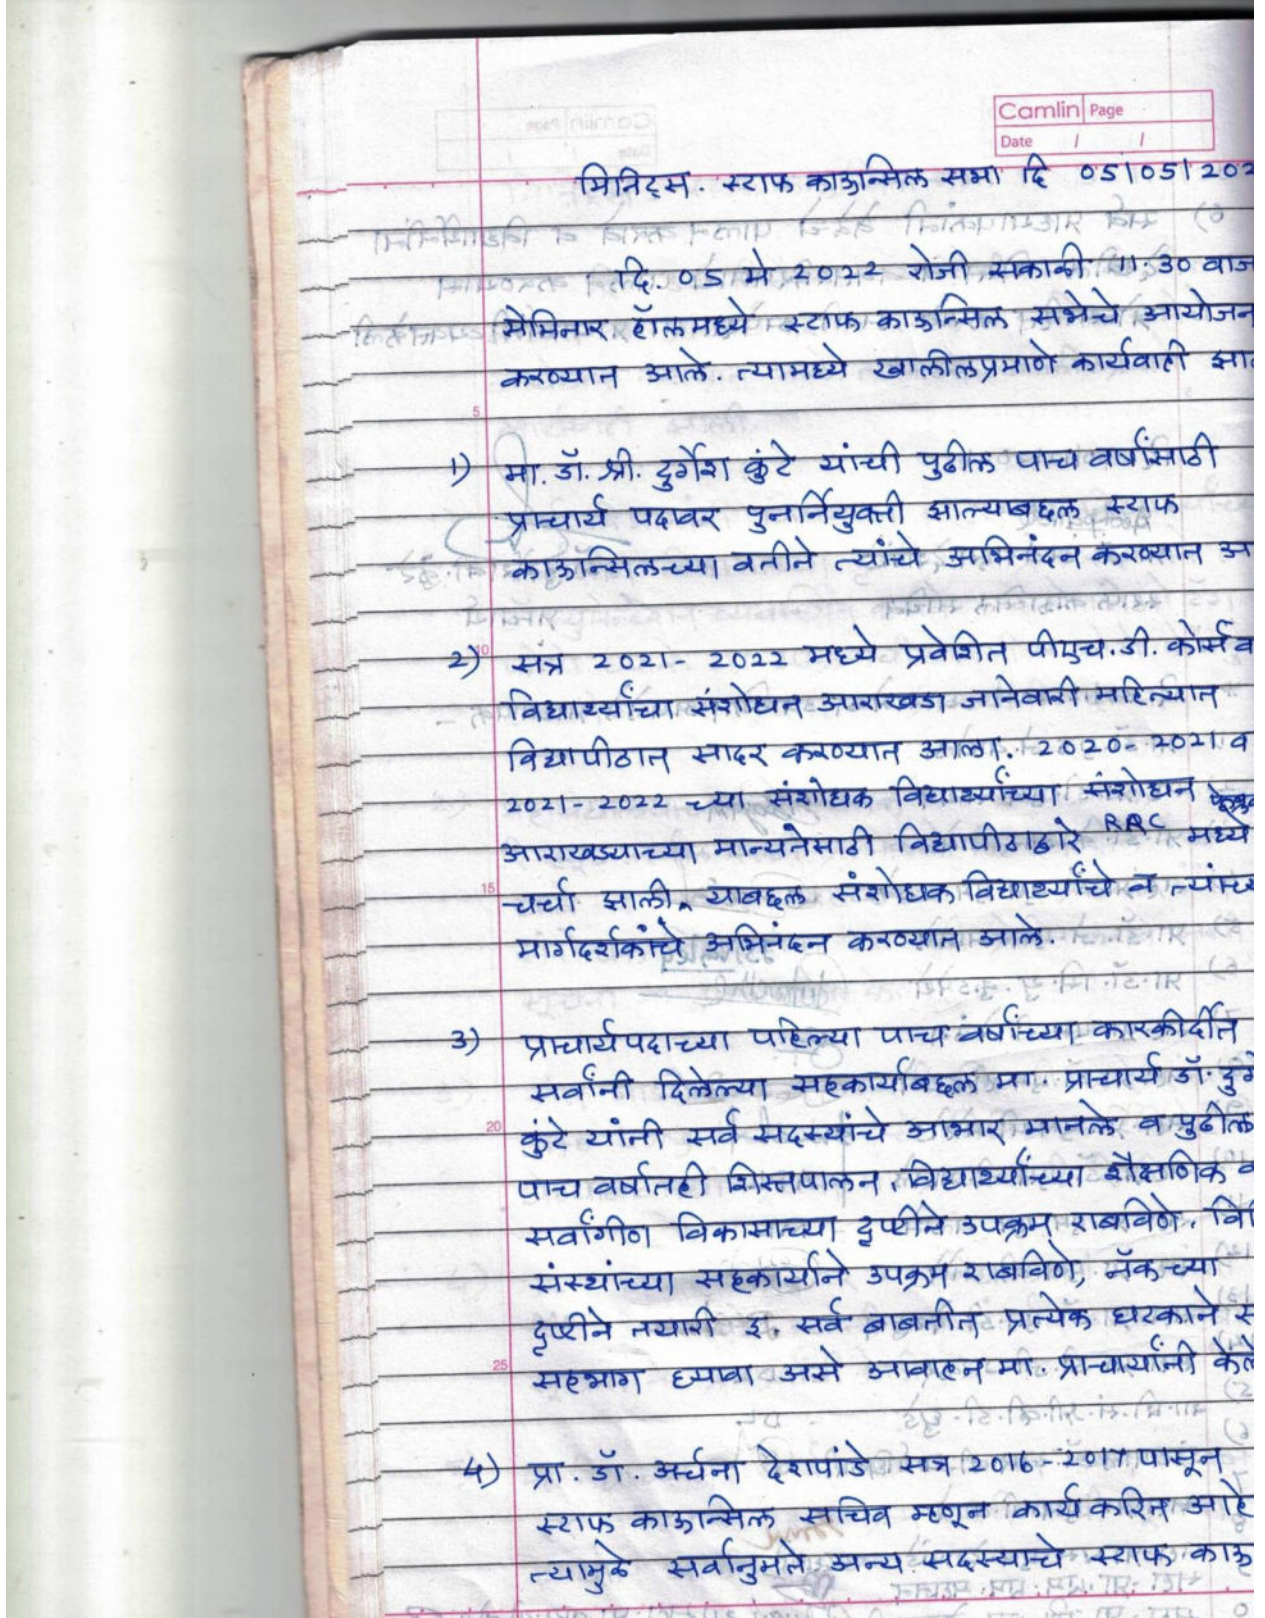 Camlin Page
Date / /
मिनिट्स. स्टाफ काऊन्सिल सभा दि 05/05/202
दि. 05 मे 2022 रोजी सकाळी 11:30 वाज
सेमिनार हॉलमध्ये स्टाफ काऊन्सिल सभेचे आयोजन
करण्यात आले. त्यामध्ये खालीलप्रमाणे कार्यवाही झा
5
1) मा. डॉ. श्री. दुर्गेश कुंटे यांची पुढील पाच वर्षांसाठी
प्राचार्य पदावर पुनर्नियुक्ती झाल्याबद्दल स्टाफ
काऊन्सिलच्या वतीने त्यांचे अभिनंदन करण्यात आ
10
2) सत्र 2021-2022 मध्ये प्रवेशित पीएच.डी. कोर्स व
विद्यार्थ्यांचा संशोधन आराखडा जानेवारी महिन्यात
विद्यापीठात सादर करण्यात आला. 2020-2021 व
2021-2022 च्या संशोधक विद्यार्थ्यांच्या संशोधन
आराखड्याच्या मान्यतेसाठी विद्यापीठाद्वारे RRC मध्ये
15
चर्चा झाली. याबद्दल संशोधक विद्यार्थ्यांचे व त्यांच्य
मार्गदर्शकांचे अभिनंदन करण्यात आले.
3) प्राचार्यपदाच्या पहिल्या पाच वर्षांच्या कारकीर्दीत
सर्वांनी दिलेल्या सहकार्याबद्दल मा. प्राचार्य डॉ. दुर्गे
20
कुंटे यांनी सर्व सदस्यांचे आभार मानले व पुढील
पाच वर्षातही शिस्तपालन, विद्यार्थ्यांच्या शैक्षणिक व
सर्वांगीण विकासाच्या दृष्टीने उपक्रम राबविणे, वि
संस्थांच्या सहकार्याने उपक्रम राबविणे, नॅकच्या
दृष्टीने तयारी इ. सर्व बाबतीत प्रत्येक घटकाने स
25
सहभाग घ्यावा असे आवाहन मा. प्राचार्यांनी केले
4) प्रा. डॉ. अर्चना देशपांडे सत्र 2016-2017 पासून
स्टाफ काऊन्सिल सचिव म्हणून कार्य करित आहे
त्यामुळे सर्वानुमते अन्य सदस्याचे स्टाफ काऊ